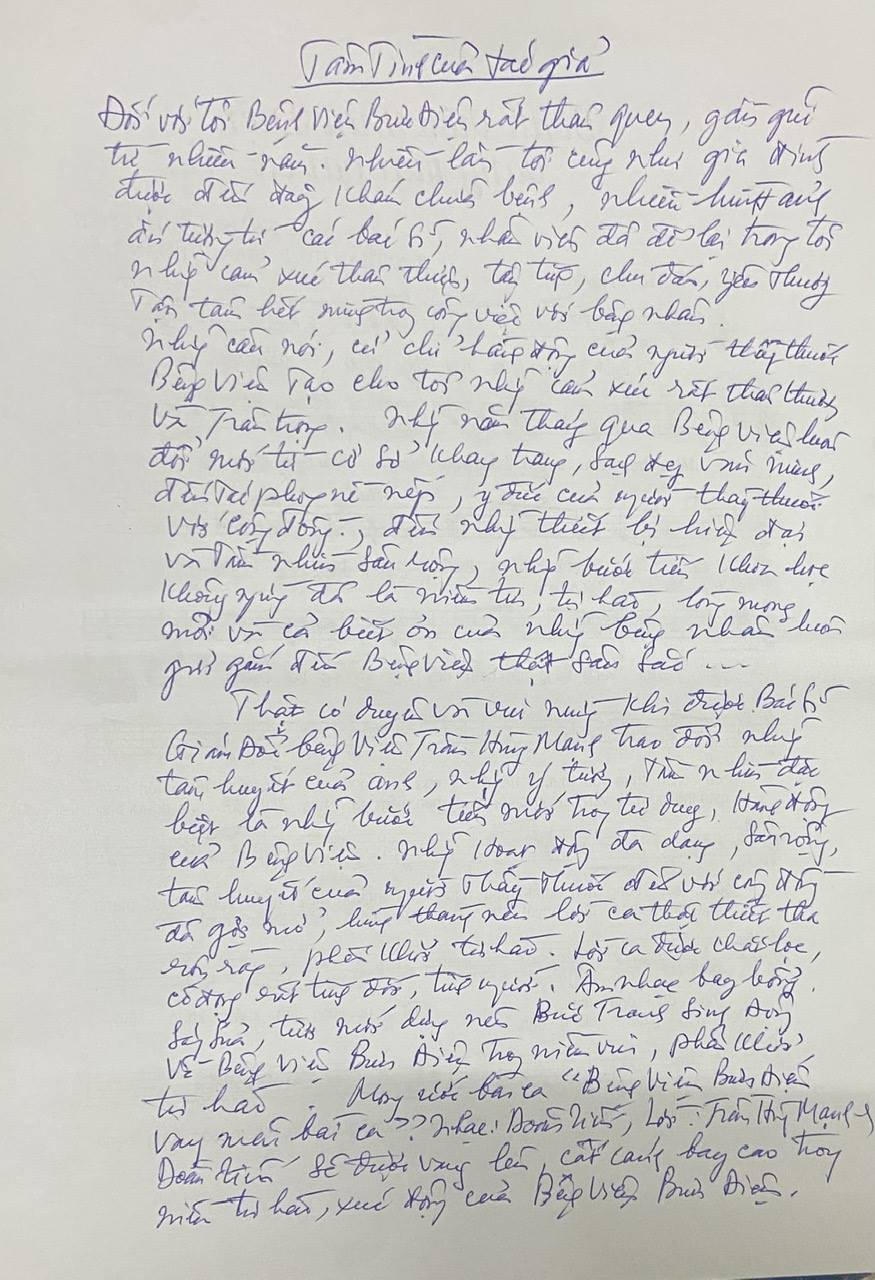 Tâm Tình của tác giả
Đối với tôi Bệnh Viện Bưu Điện rất thân quen, gần gũi
từ nhiều năm. Nhiều lần tôi cũng như gia đình
được đến đây khám chữa bệnh, nhiều hình ảnh
ấn tượng từ các bác sĩ, nhân viên đã để lại trong tôi
những cảm xúc thân thiện, chu đáo, yêu thương
Tận tâm hết mình trong công việc với bệnh nhân.
Những câu nói, cử chỉ hành động của người thầy thuốc
Bệnh Viện Tạo cho tôi những cảm xúc rất thân thương
và Trân trọng. Những năm tháng qua Bệnh Viện luôn
đổi mới từ cơ sở khang trang, sạch đẹp văn minh,
đến Tác phong nề nếp, y đức của người thầy thuốc
với cộng đồng, đến những thiết bị hiện đại
và Tầm nhìn sâu rộng, những bước tiến khoa học
không ngừng đã là niềm tin, tự hào, lòng mong
mỏi và cả biết ơn của những bệnh nhân luôn
gửi gắm đến Bệnh Viện thật sâu sắc ...
Thật có duyên và vui mừng khi được Bác Sĩ
Giám Đốc bệnh Viện Trần Hùng Mạnh trao đổi những
tâm huyết của anh, những ý tưởng, Tầm nhìn đặc
biệt là những bước tiến mới trong tư duy, Hành động
của Bệnh Viện. Những Hoạt động đa dạng, sâu rộng,
tâm huyết của người Thầy Thuốc đến với cộng đồng
đã gợi mở, thành nên lời ca thật thiết tha
rộn ràng, phấn khởi tự hào. Lời ca được chắt lọc,
cô đọng rất từng đời, từng người. Âm nhạc bay bổng,
tươi mới dựng nên Bức Tranh Sinh động
Về Bệnh Viện Bưu Điện trong niềm vui, phấn khởi
tự hào. Mong ước bài ca "Bệnh Viện Bưu Điện
vang mãi bài ca" Nhạc: Doãn Tiến, Lời: Trần Hùng Mạnh -
Doãn Tiến sẽ được vang lên, cất cánh bay cao trong
niềm tự hào, xúc động của Bệnh Viện Bưu Điện.